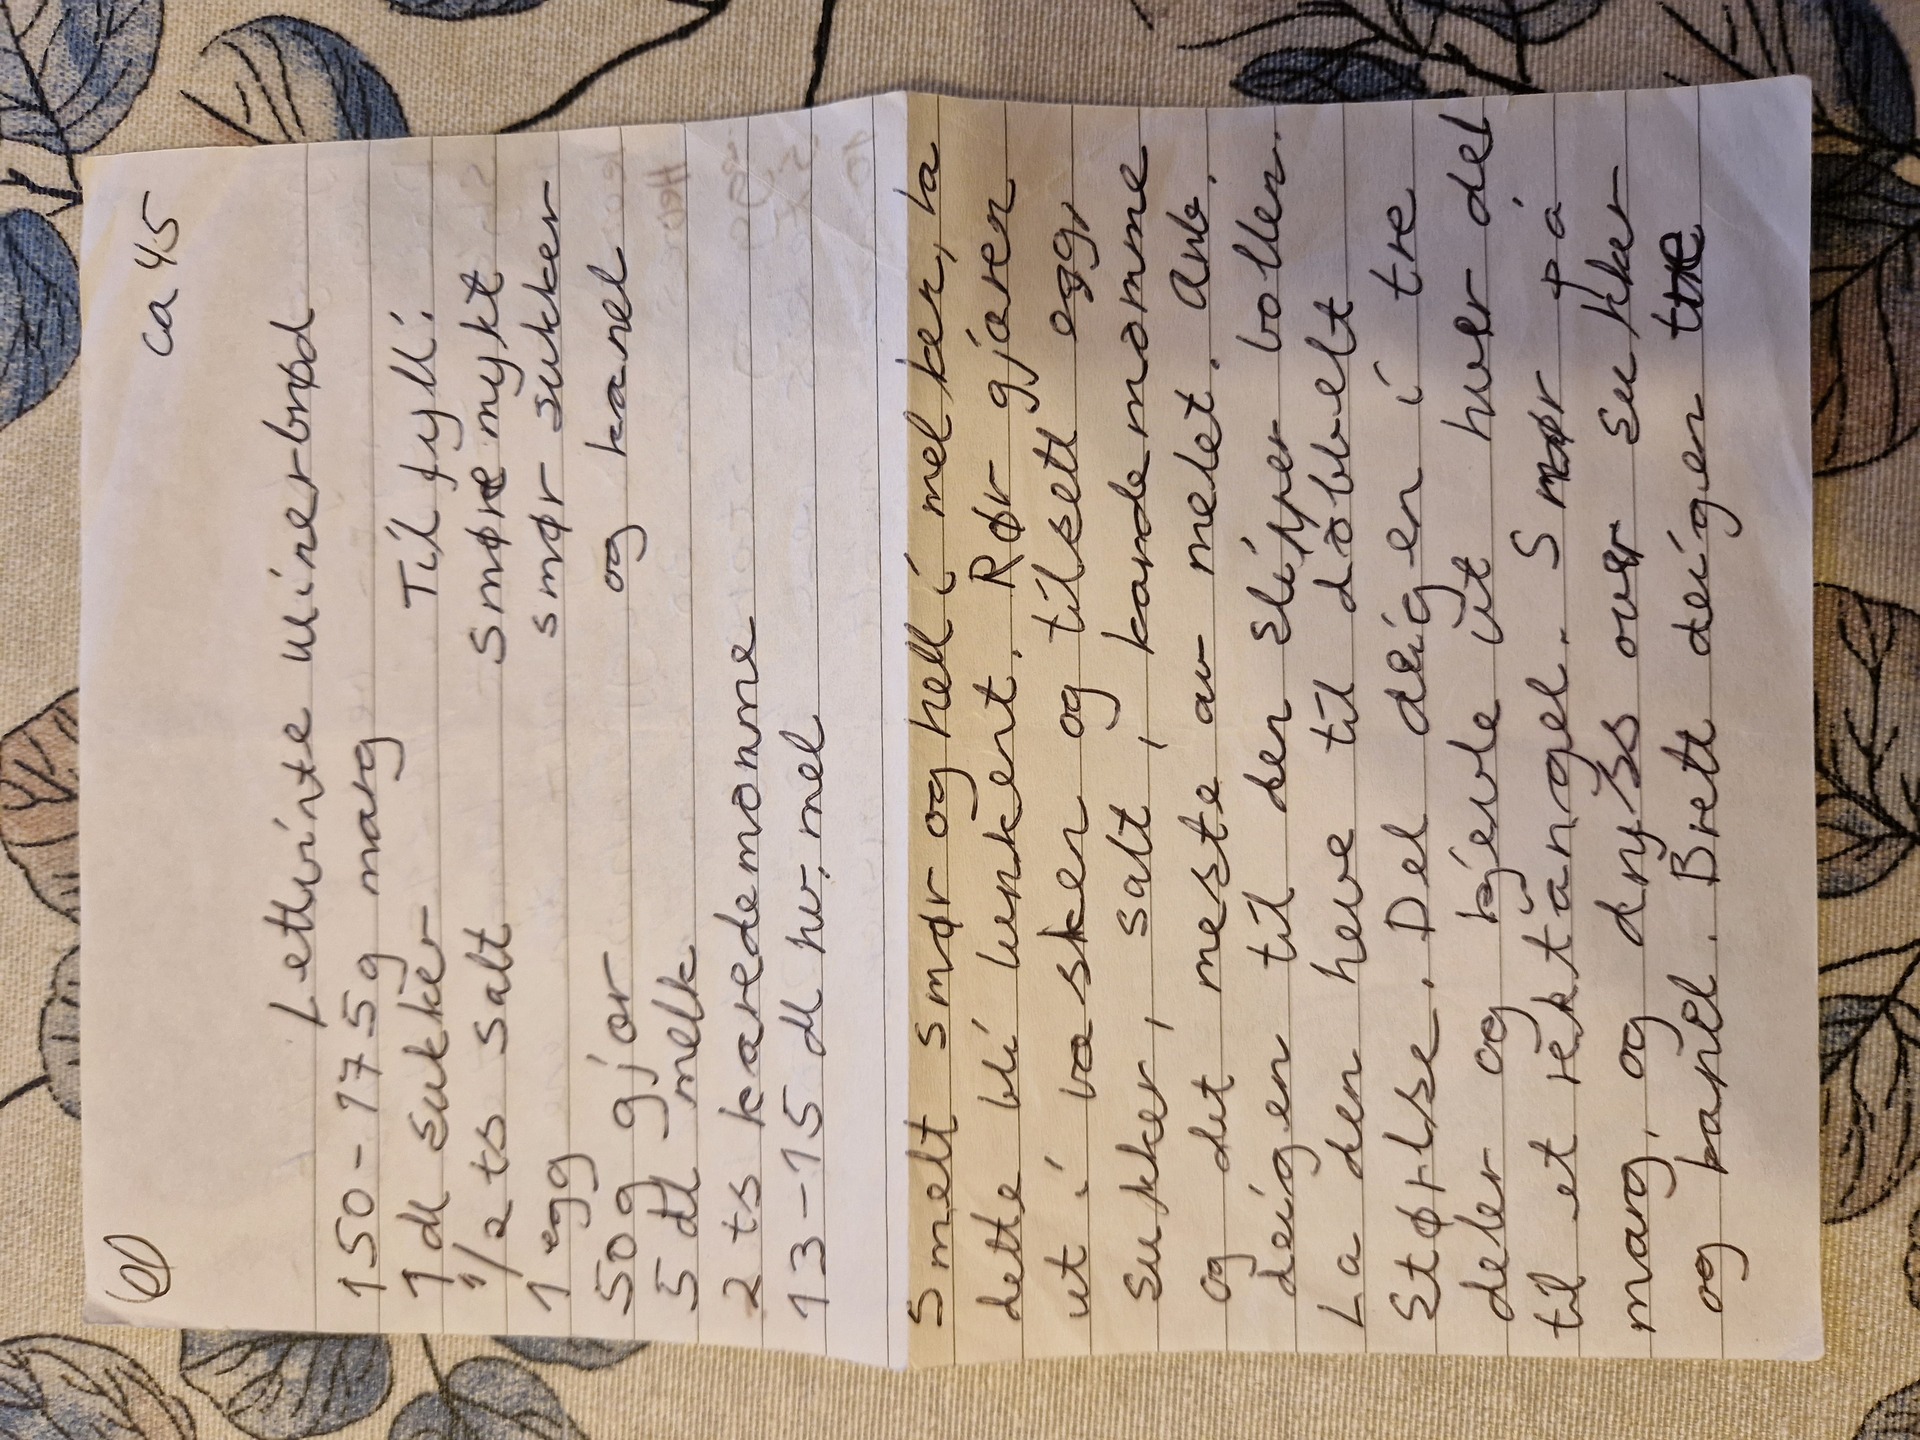 61
ca 45
Lettvinte Wienerbrød
150-175g marg
1 dl sukker
1/2 ts salt
1 egg
50g gjær
5 dl melk
2 ts karedemomme
13-15 dl hv. mel
Til fyll:
Smøre mykt
smør sukker
og kanel
Smelt smør og hell i melken, la
dette bli lunkent. Rør gjæren
ut i væsken og tilsett egg,
sukker, salt, kardemomme
og det meste av melet. Arb.
deigen til den slipper bollen.
La den heve til dobbelt
størlse. Del deigen i tre
deler og kjevle ut hver del
til et rektangel. Smør på
marg, og dryss over sukker
og kanel. Brett deigen tre